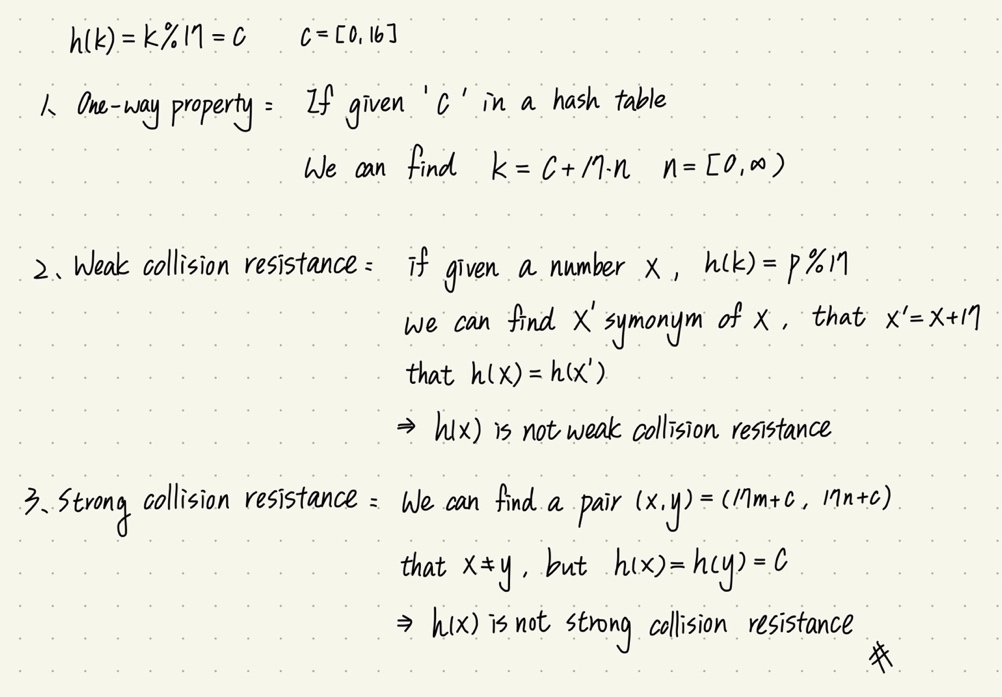 h(k) = k%17 = c    c = [0, 16]
1、One-way property = If given 'c' in a hash table
We can find k = c + 17·n  n = [0, ∞)
2、Weak collision resistance = if given a number x, h(k) = p%17
we can find x' symonym of x, that x' = x+17
that h(x) = h(x')
⇒ h(x) is not weak collision resistance
3、Strong collision resistance = We can find a pair (x,y) = (17m+c, 17n+c)
that x≠y, but h(x) = h(y) = c
⇒ h(x) is not strong collision resistance
#